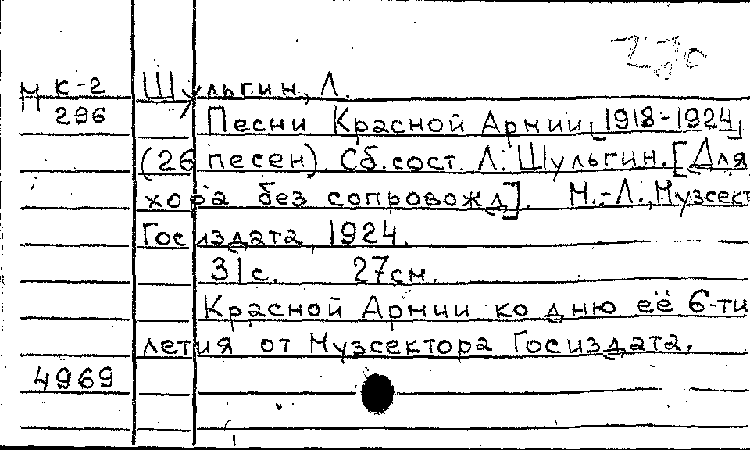 М к-2 Шульгин, Л.
296 Песни Красной Армии [1918-1924]
(26 песен) Сб.сост. Л. Шульгин. [Для
хора без сопровожд]. М.-Л., Музсект
Госиздата, 1924.
31с. 27см.
Красной Армии ко дню её 6-ти
летия от Музсектора Госиздата.
4969